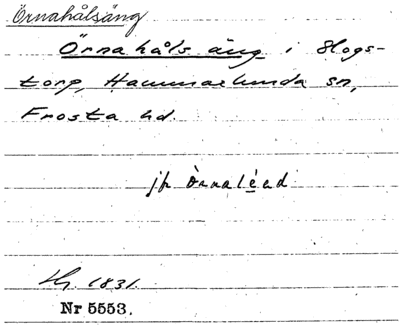 Örnahålsäng
Örnahåls äng i Slogs-
torp, Hammarlunda sn,
Frosta hd.
jfr Örnaléad
1831.
Nr 5553.